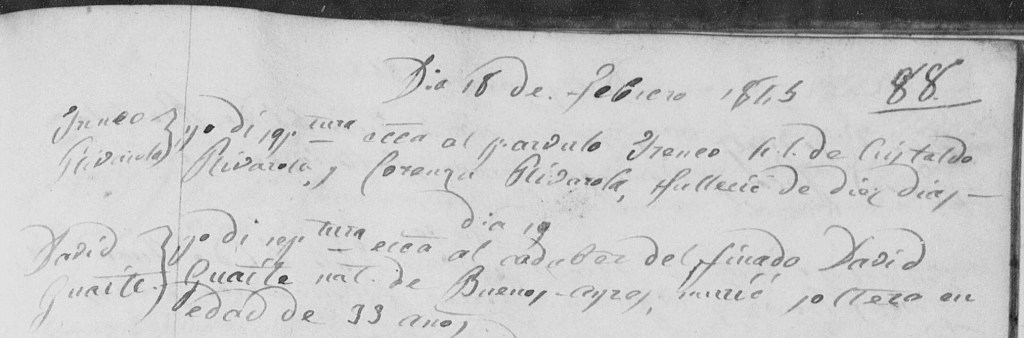 Dia 18 de Febrero 1865 88
Ireneo yo di sep.tura ecca al parvulo Ireneo h.l. de Cristaldo
Rivarola Rivarola, y Lorenza Rivarola, falleció de diez dias
dia 19
David yo di sep.tura ecca al cadaber del finado David
Guaite Guaite nat. de Buenos-ayres, murió soltero en
edad de 33 años